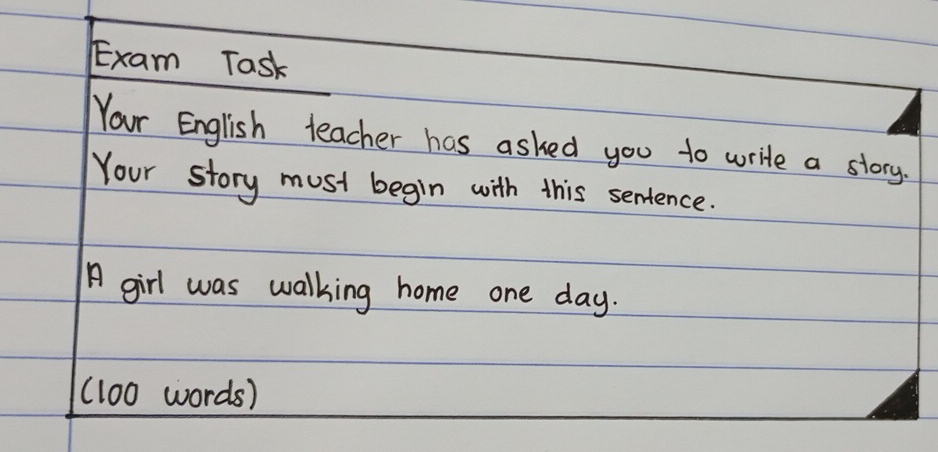 Exam Task
Your English teacher has asked you to write a story.
Your story must begin with this sentence.
A girl was walking home one day.
(100 words)